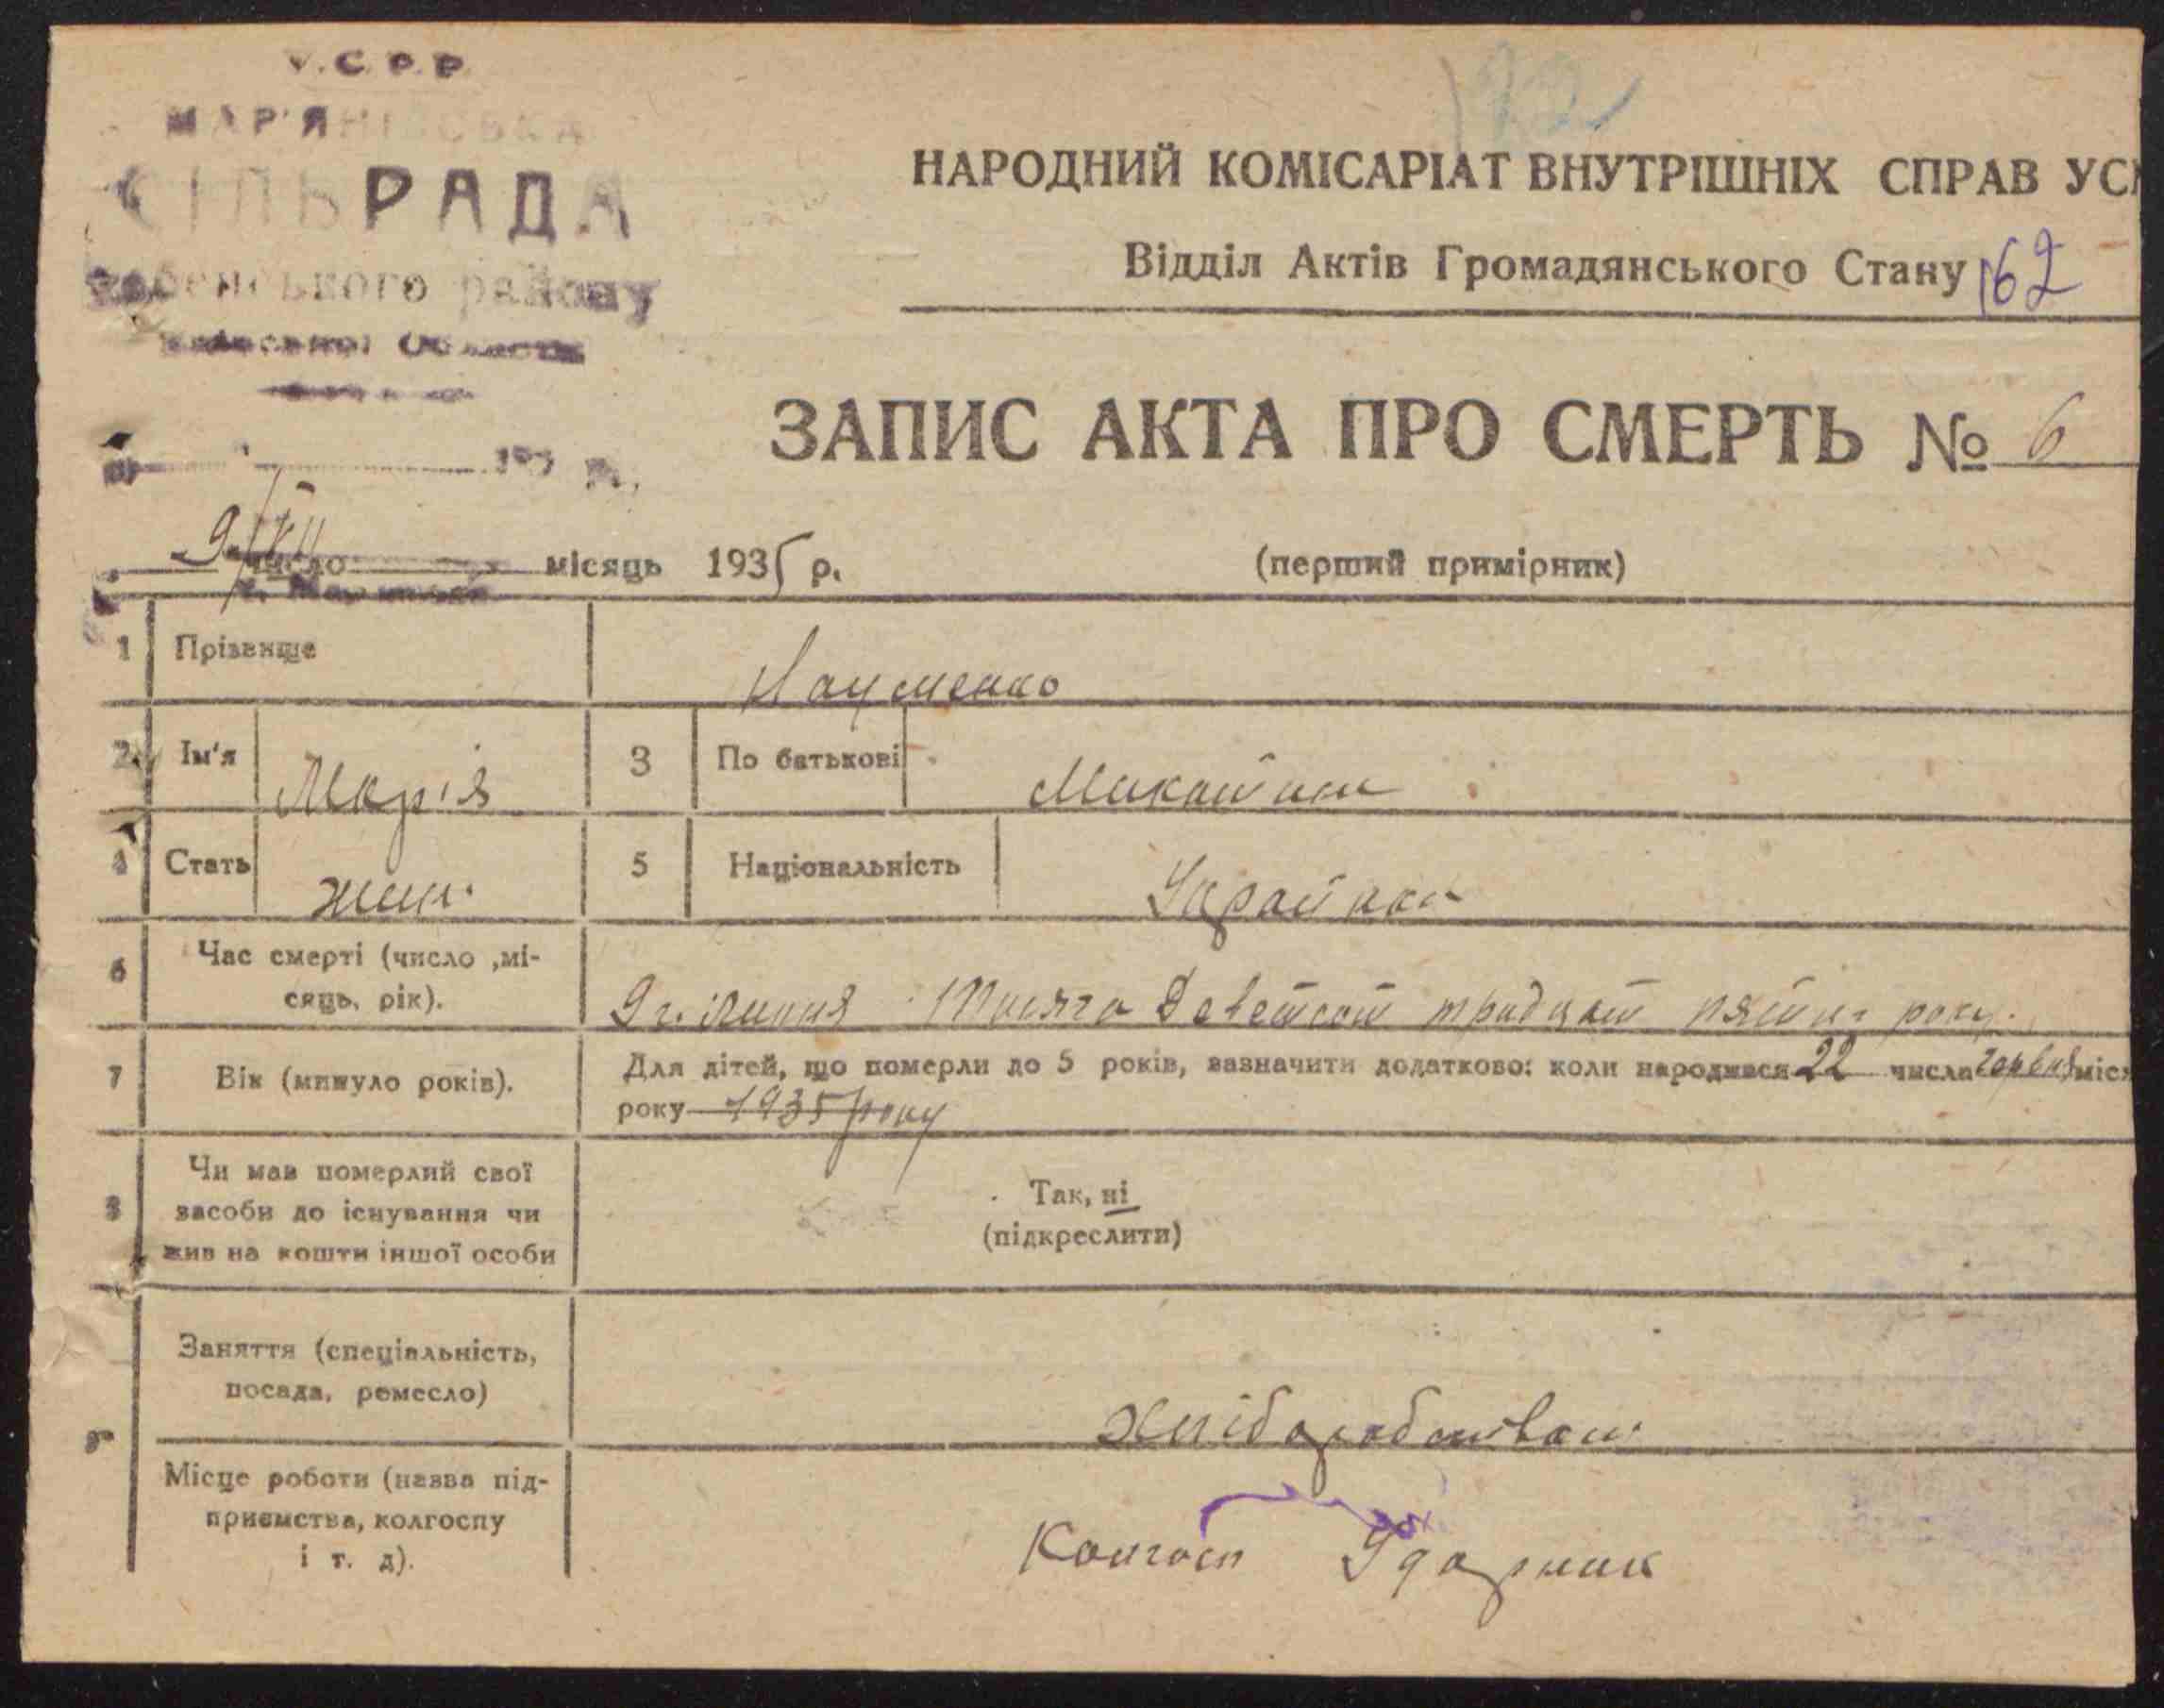 У.С.Р.Р.
МАР'ЯНІВСЬКА
СІЛЬРАДА
району
Області
193 р.
122
НАРОДНИЙ КОМІСАРІАТ ВНУТРІШНІХ СПРАВ УС
Відділ Актів Громадянського Стану 162
ЗАПИС АКТА ПРО СМЕРТЬ № 6
9/VII число місяць 1935 р.
(перший примірник)
1 Прізвище Науменко
2 Ім'я Марія 3 По батькові
4 Стать жин. 5 Національність Українка
6 Час смерті (число ,мі-
сяць, рік). 9 го липня Тисяча девятсот тридцят пятиг року.
7 Вік (минуло років). Для дітей, що померли до 5 років, зазначити додатково: коли народився 22 числа червня міся
року 1935 року
8 Чи мав померлий свої
засоби до існування чи
жив на кошти іншої особи
Так, ні
(підкреслити)
9 Заняття (спеціальність,
посада, ремесло)
Місце роботи (назва під-
приємства, колгоспу
і т. д).
Колгосп Ударник